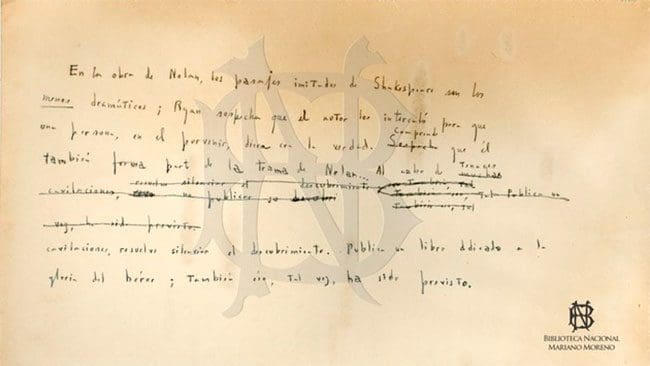 En la obra de Nolan, los pasajes imitados de Shakespeare son los
menos dramáticos; Ryan sospecha que el autor los intercaló para que
Comprende
una persona, en el porvenir, diera con la verdad. Sospecha que él
tenaces
también forma part de la trama de Nolan... Al cabo de muchas
resuelve silenciar el descubrimiento también eso, tal
cavilaciones, no publicar su
también eso, tal
vez, ha sido previsto.
cavilaciones, resuelve silenciar el descubrimiento. Publica un libro dedicado a la
gloria del héroe; también eso, tal vez, ha sido previsto.
BIBLIOTECA NACIONAL
MARIANO MORENO